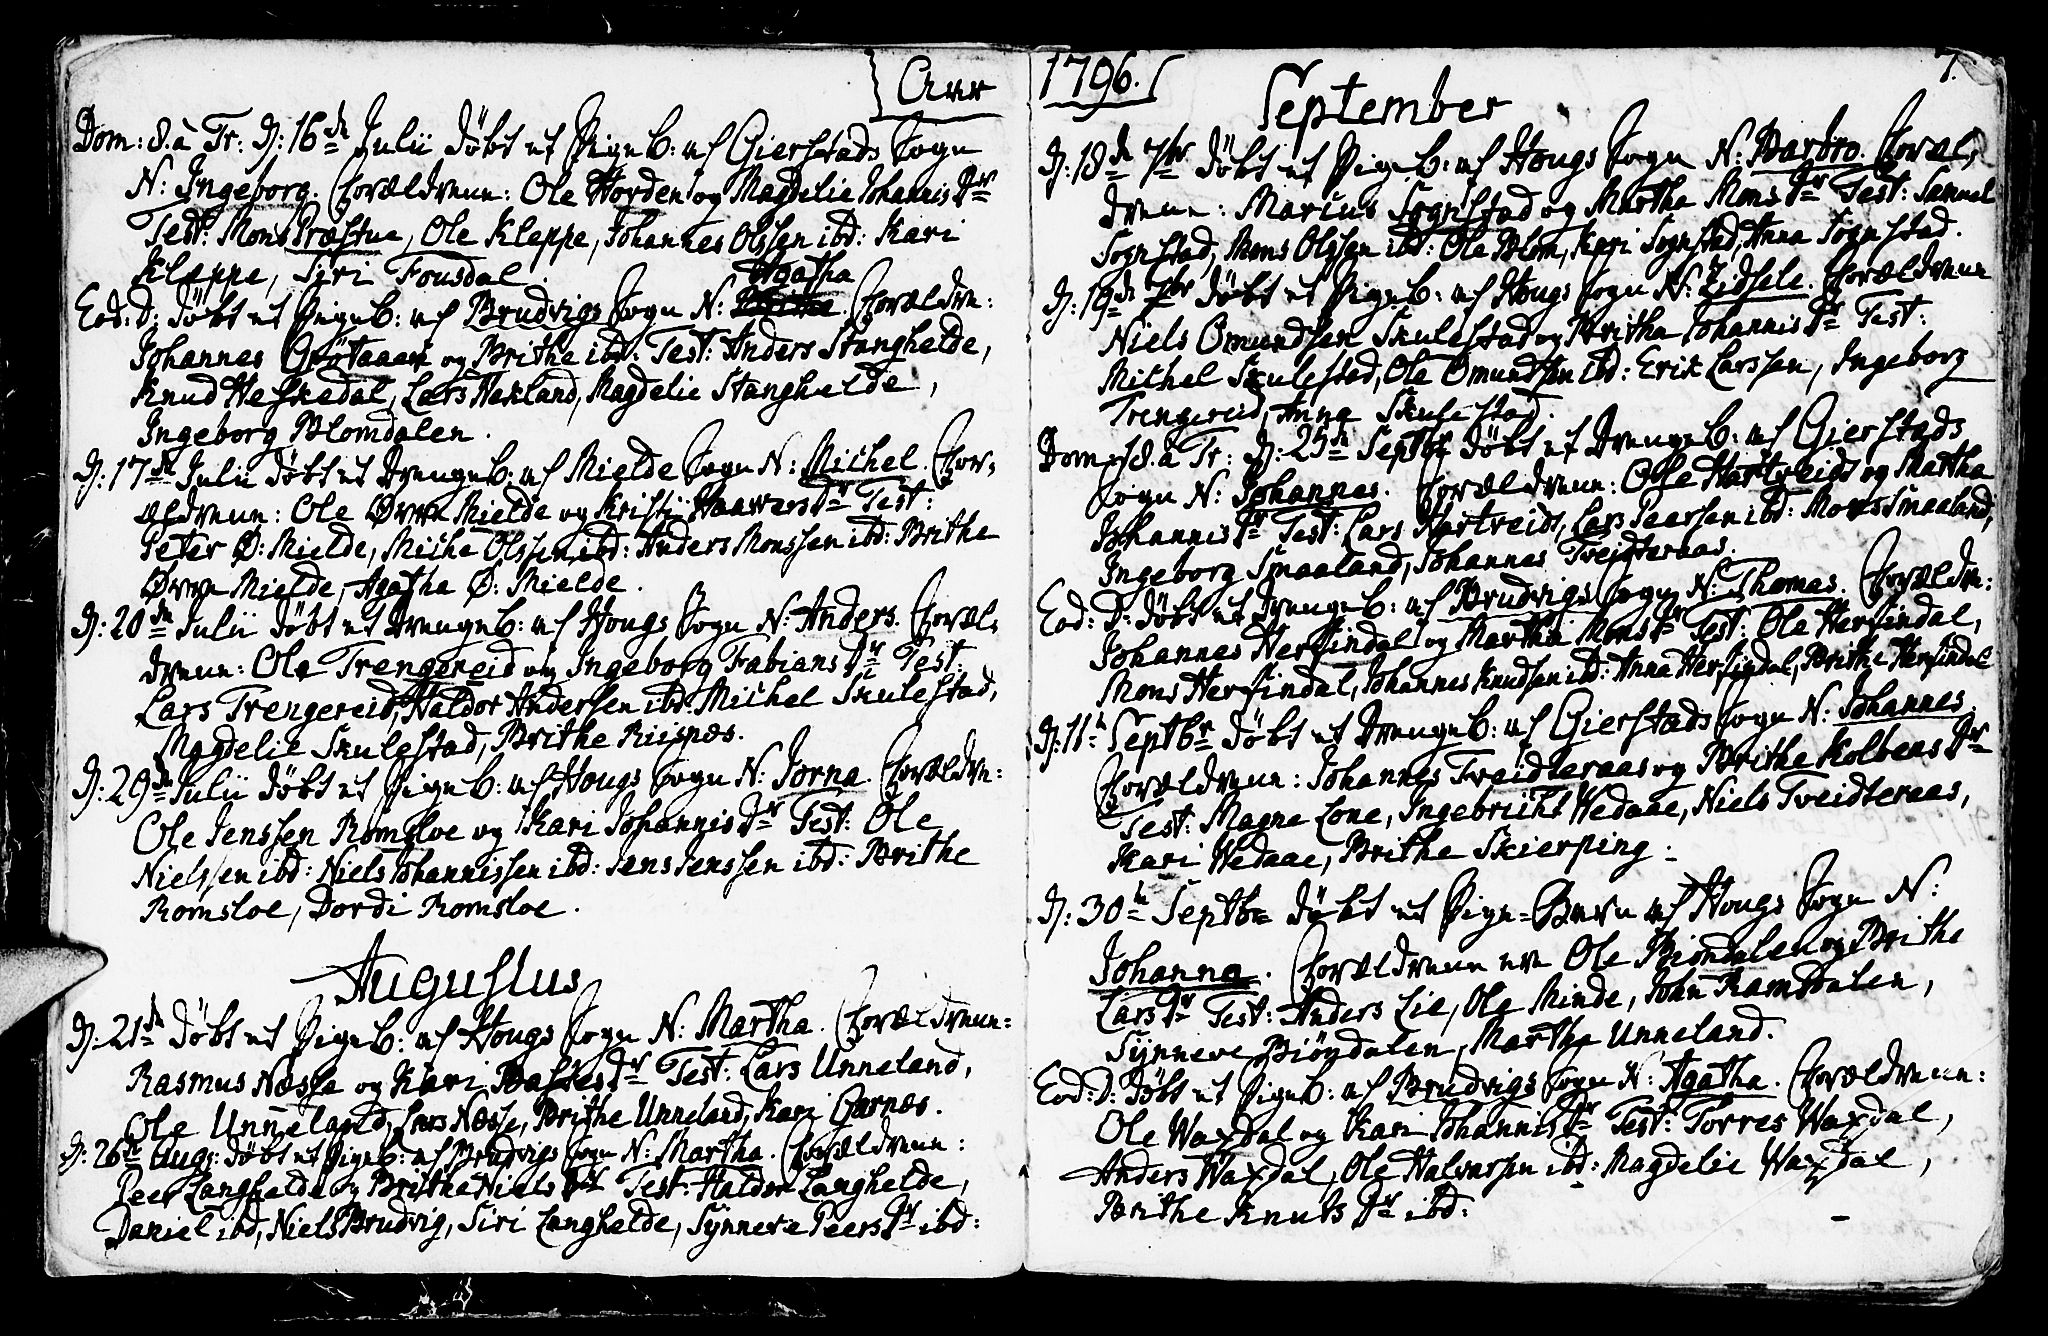 Aar
Dom: 8. à Tr: D: 16de Julii døbt et Pigeb: af Gierstads Sogn
N: Ingeborg. Forældrene: Ole Horden og Magdelie Johannis Dr
Test: Mons Præstue, Ole Kleppe, Johannes Olssen ibd: Kari
Kleppe, Syri Fousdal.
Agatha
Eod: D: døbt et Pigeb: af Brudvigs Sogn N: Forældre:
Johannes og Brithe ibd: Test: Anders Stanghelde,
Knud Heskedal, Lars Hekland, Magdelie Stanghelde,
Ingeborg Blomdalen.
D: 17de Julii døbt et Drengeb: af Mielde Sogn N: Michel. For-
ældrene: Ole Øvre Mielde og Kristi Haavers Dr Test:
Peter Ø: Mielde, Miche Olssen ibd: Anders Monssen ibd: Brithe
Øvre Mielde, Agatha Ø: Mielde.
D: 20de Julii døbt et Drengeb: af Hougs Sogn N: Anders. Foræl-
drene: Ole Trengereid og Ingeborg Fabians Dr Test:
Lars Trengereid, Haldor Andersen ibd: Michel Skulestad,
Magdelie Skulestad, Brithe Riisnæs.
D: 29de Julii døbt et Pigeb: af Hougs Sogn N: Jorna. Forældre:
Ole Jenssen Romsloe og Kari Johannis Dr Test: Ole
Nielssen ibd: Niels Johannissen ibd: Jens Jenssen ibd: Brithe
Romsloe, Dordi Romsloe.
Augustus
D: 21de døbt et Pigeb: af Hougs Sogn N: Martha. Forældrene:
Rasmus Næsse og Kari Dr Test: Lars Unneland,
Ole Unneland, Lars Næsse, Brithe Unneland, Kari Garnæs.
D: 26de Aug: døbt et Pigeb: af Brudvigs Sogn N: Martha. Forældrene:
Peer Langhelde og Brithe Niels Dr Test: Haldor Langhelde,
Daniel ibd, Niels Brudvig, Siri Langhelde, Synneve Peers Dr ibd:
1796.
7.
September
D: 18de 7br døbt et Pigeb: af Hougs Sogn N: Barbro. Foræl-
drene: Marius Sognstad og Martha Mons Dr Test: Samuel
Sognstad, Mons Olssen ibd: Ole Blom, Kari Sognstad, Anna Sognstad.
D: 19de 7br døbt et Pigeb: af Hougs Sogn N: Zidsele. Forældrene
Niels Omundsen Skulestad og Brithe Johannis Dr Test:
Michel Skulestad, Ole Omundsen ibd: Erik Larssen, Ingeborg
Trengereid, Anna Skulestad.
Dom: 18. à Tr: D: 25de Septbr døbt et Drengeb: af Gierstads
Sogn N: Johannes. Forældrene: Ole Hartveidt og Martha
Johannis Dr Test: Lars Hartveidt, Lars Peersen ibd: Mons Smaaland,
Ingeborg Smaaland, Johannes Tveidteraas.
Eod: D: døbt et Drengeb: af Brudvigs Sogn N: Thomas. Forældre:
Johannes Herfindal og Martha Mons Dr Test: Ole Herfindal,
Mons Herfindal, Johannes Knudsen ibd: Anna Herfindal, Brithe Herfindal
D: 11te Septbr døbt et Drengeb: af Gierstads Sogn N: Johannes.
Forældrene: Johannes Tveidteraas og Brithe Kolbens Dr
Test: Magne Lone, Ingebricht Wedaae, Niels Tveidteraas,
Kari Wedaae, Brithe Skierping.
D: 30te Septbr døbt et Pige-Barn af Hougs Sogn N:
Johanna. Forældrene ere Ole Biøndalen og Brithe
Lars Dr Test: Anders Lie, Ole Minde, John Ramsdalen,
Synneve Biøndalen, Martha Unneland.
Eod: D: døbt et Pigeb: af Brudvigs Sogn N: Agatha. Forældrene:
Ole Waxdal og Kari Johannis Dr Test: Torres Waxdal,
Anders Waxdal, Ole Halvarsen ibd: Magdelie Waxdal,
Brithe Knuts Dr ibd: